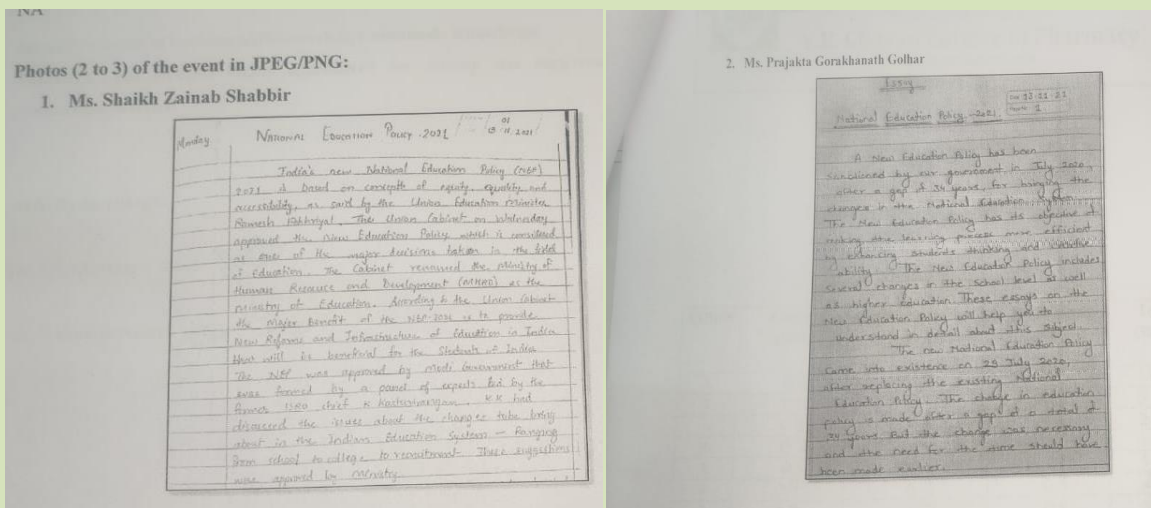 NA
Photos (2 to 3) of the event in JPEG/PNG:
1. Ms. Shaikh Zainab Shabbir
Monday
NATIONAL EDUCATION POLICY-2021
India's new National Education Policy (NEP)
2021 is based on concepts of equity, equality and
accessibility, as said by the Union Education Minister
Ramesh Pokhriyal. The Union Cabinet on Wednesday
approved the New Education Policy which is considered
as one of the major decisions taken in the field
of Education. The Cabinet renamed the Ministry of
Human Resource and Development (MHRD) as the
Ministry of Education. According to the Union Cabinet
the major benefit of the NEP-2021 is to provide
New Reforms and Infrastructure of Education in India
that will be beneficial for the Students of India
The NEP was approved by Modi Government that
was formed by a panel of experts led by the
former ISRO chief K Kasturirangan. KK had
discussed the issues about the changes to be bring
about in the Indian Education System - Ranging
from school to college to recruitment. These suggestions
were approved by ministry
2. Ms. Prajakta Gorakhanath Golhar
Essay
National Education Policy-2021
A New Education Policy has been
sanctioned by our government in July 2020,
after a gap of 34 years, for bringing the
changes in the National Education
The New Education Policy has its objective of
making the learning process more efficient
by enhancing students thinking and
ability. The New Education Policy includes
several changes in the school level as well
as higher education. These essays on the
New Education Policy will help you to
understand in detail about this subject.
The new National Education Policy
came into existence on 29 July 2020,
after replacing the existing National
Education Policy. The change in education
policy is made after a gap of a total of
34 years. But the change was necessary
and the need for the time should have
been made earlier.